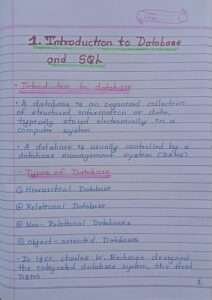 1. Introduction to Database
and SQL
• Introduction to database
• A database is an organized collection
of structured information or data,
typically stored electronically in a
computer system
• A database is usually controlled by a
database management system (DBMS)
• Types of Database
① Hierarchical Database
② Relational Database
③ Non-Relational Databases
④ Object-oriented Database
• In 1960, Charles W. Bachman designed
the integrated database system, the first
DBMS